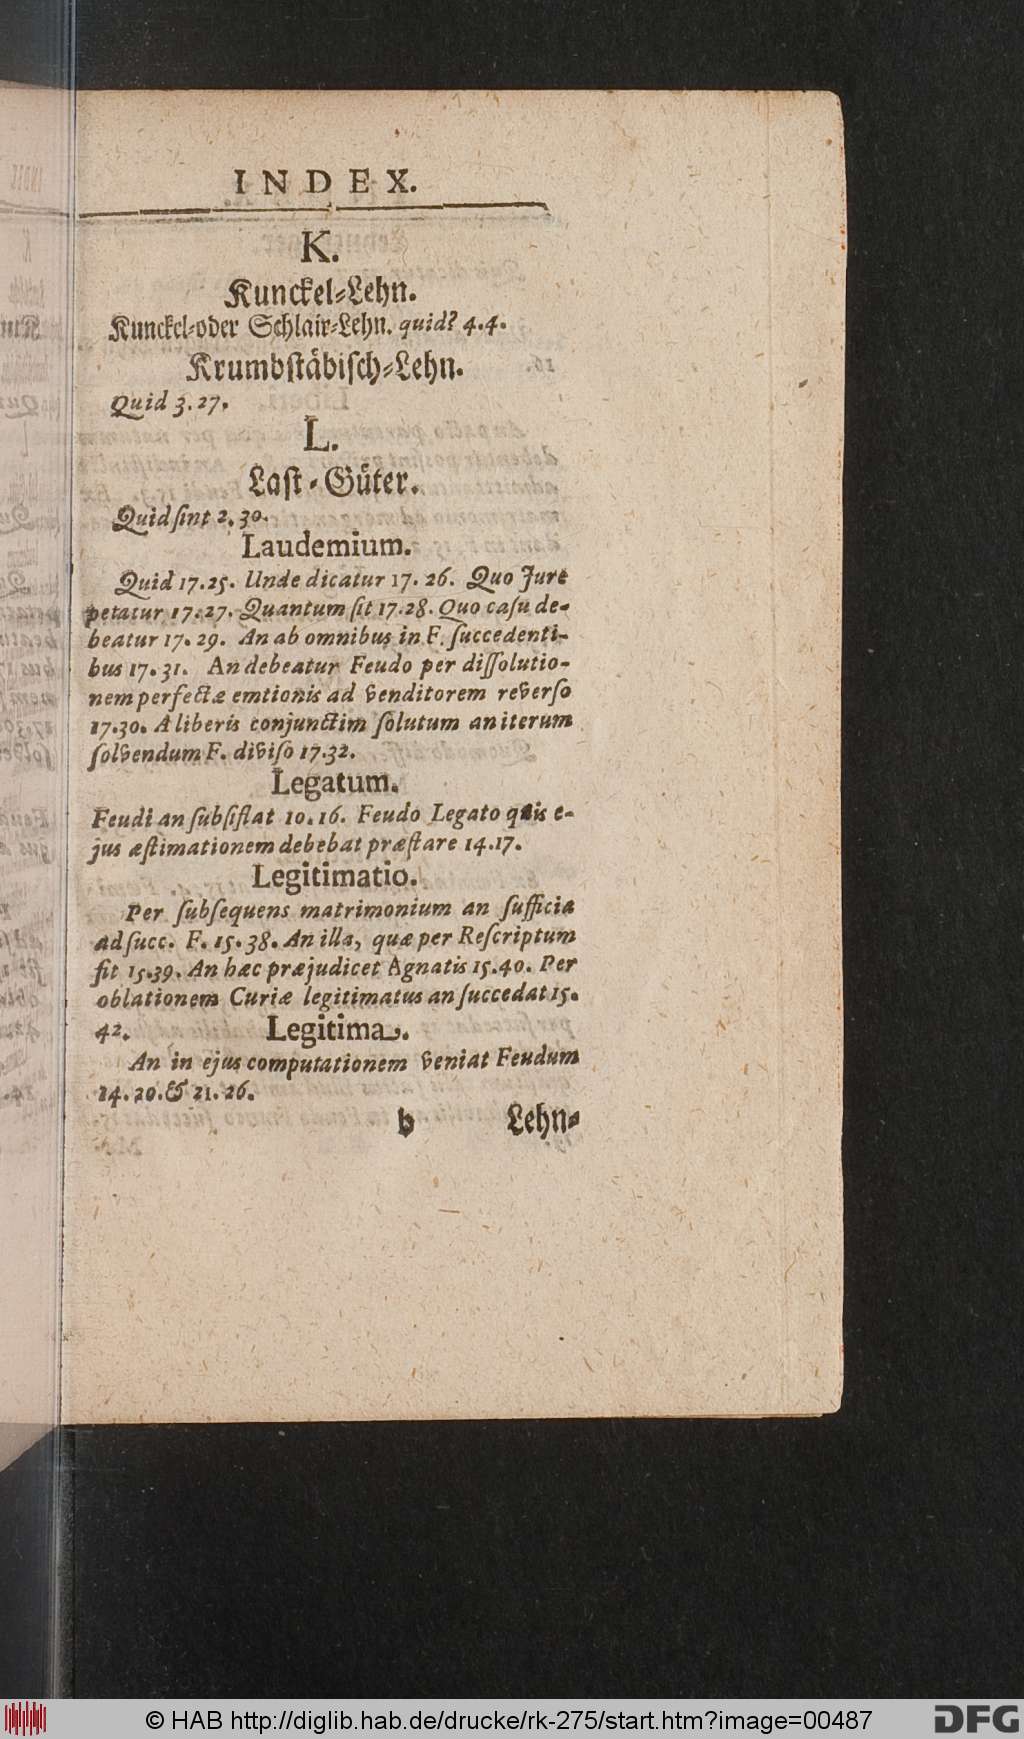 INDEX.
K.
Kunckel-Lehn.
Kunckel-oder Schlair-Lehn. quid? 4.4.
Krumbstäbisch-Lehn.
Quid 3.27.
L.
Last-Güter.
Quid sint 2.30.
Laudemium.
Quid 17.25. Unde dicatur 17.26. Quo Jure
petatur 17.27. Quantum sit 17.28. Quo casu de-
beatur 17.29. An ab omnibus in F. succedenti-
bus 17.31. An debeatur Feudo per dissolutio-
nem perfectæ emtionis ad venditorem reverso
17.30. A liberis conjunctim solutum an iterum
solvendum F. diviso 17.32.
Legatum.
Feudi an subsistat 10.16. Feudo Legato quis e-
jus æstimationem debebat præstare 14.17.
Legitimatio.
Per subsequens matrimonium an sufficia
ad succ. F. 15.38. An illa, quæ per Rescriptum
fit 15.39. An hæc præjudicet Agnatis 15.40. Per
oblationem Curiæ legitimatus an succedat 15.
42. Legitima.
An in ejus computationem veniat Feudum
14.20. & 21.26.
b Lehn-
© HAB http://diglib.hab.de/drucke/rk-275/start.htm?image=00487
DFG